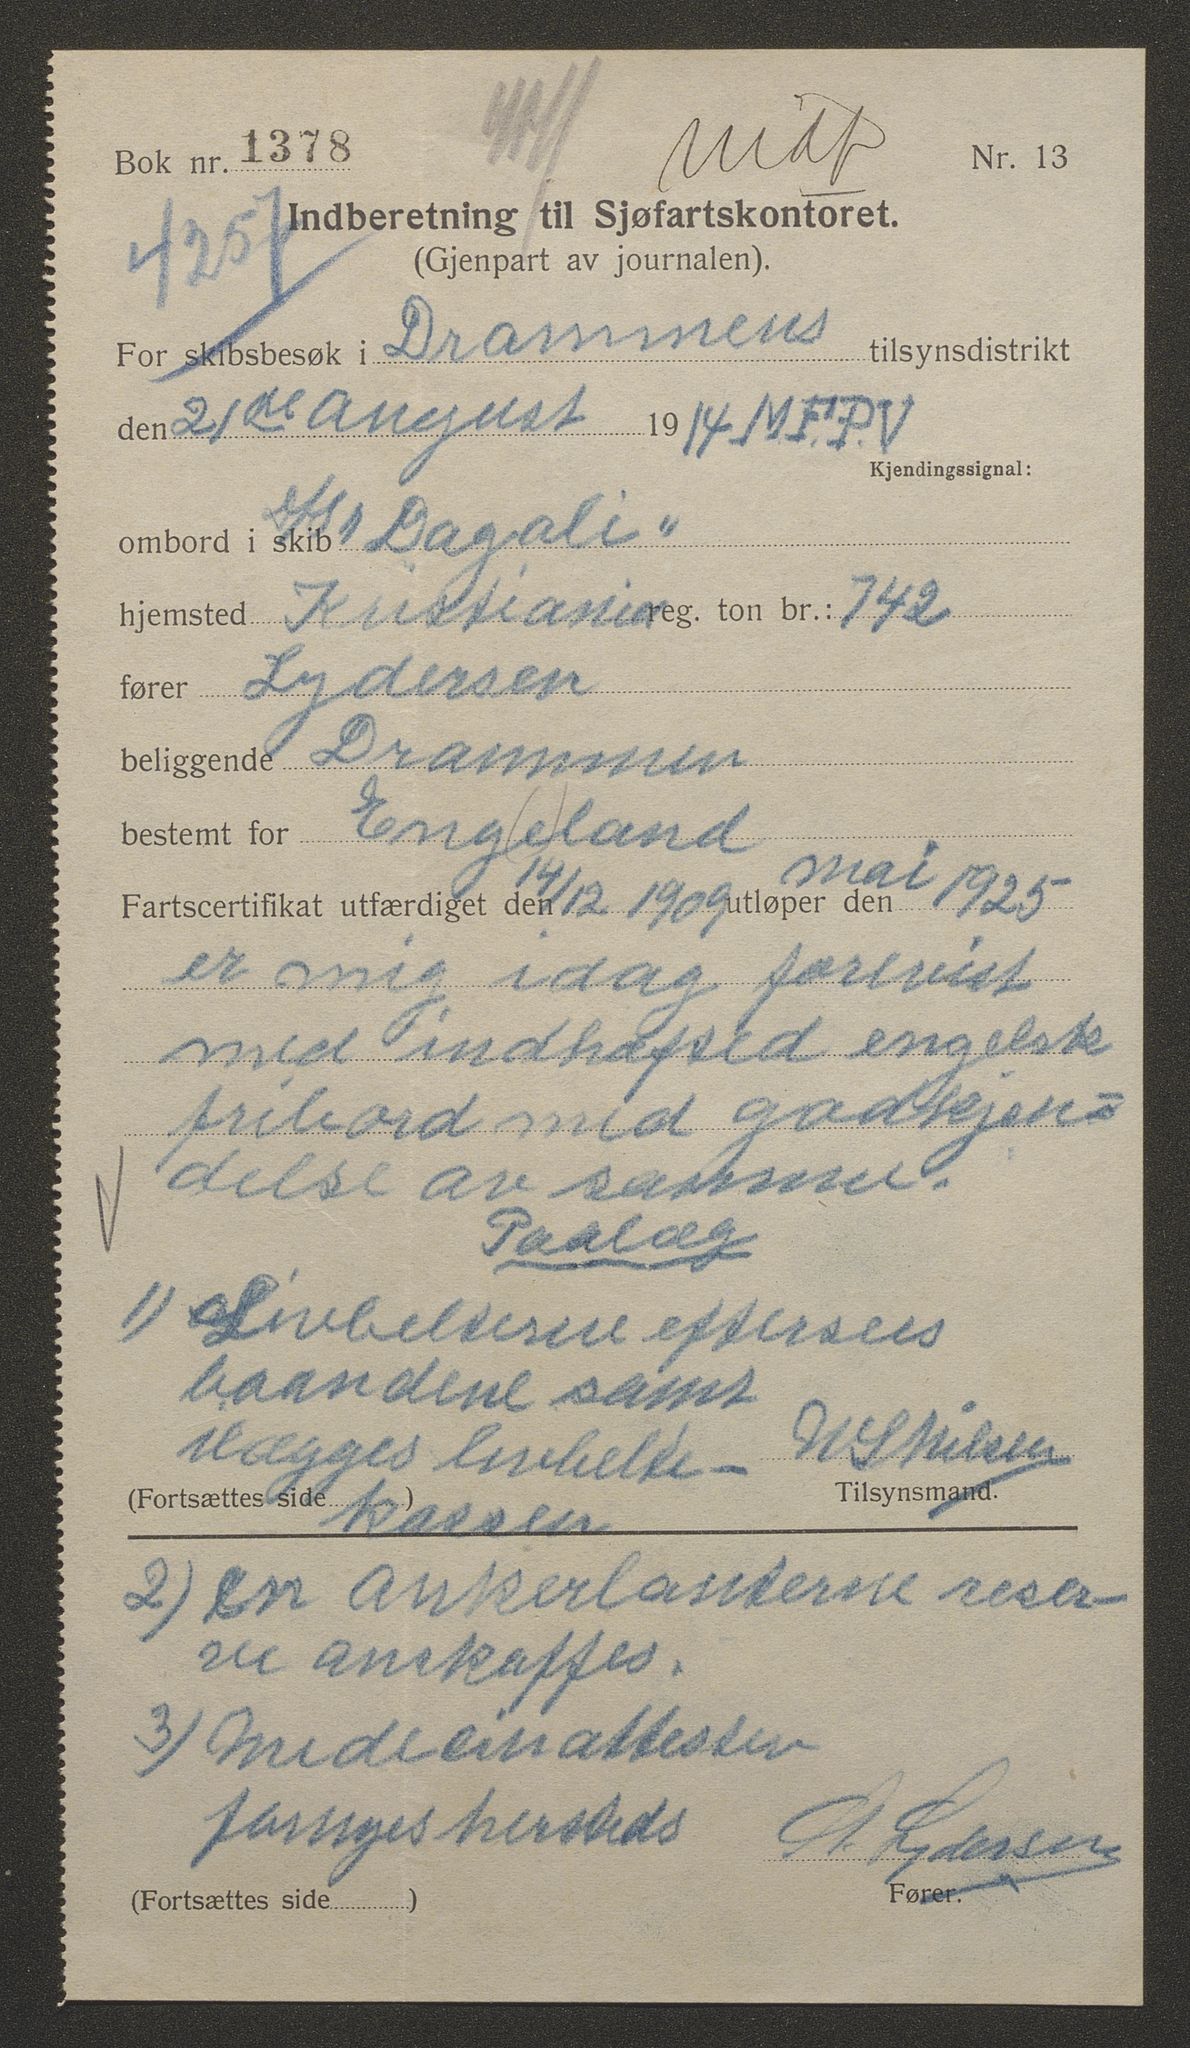 Bok nr. 1378
Nr. 13
4257
Indberetning til Sjøfartskontoret.
(Gjenpart av journalen).
For skibsbesøk i Drammens tilsynsdistrikt
den 21de August 1914 M.F.P.V
Kjendingssignal:
ombord i skib D/S "Dagali"
hjemsted Kristiania reg. ton br.: 742
fører Lydersen
beliggende Drammen
bestemt for Eng(e)land
Fartscertifikat utfærdiget den 14/12 1909 utløper den mai 1925
er mig idag forevist
med indhefted engelsk
fribord med godkjen=
delse av samme.
Paalæg
1) Livbelterne eftersees
baandene samt
ilægges livbelte-
kassen
N S Nilsen
Tilsynsmand.
(Fortsættes side )
2) En Ankerlanterne reser-
ve anskaffes.
3) Medecinattesten
fornyes hersteds
A. Lydersen
Fører.
(Fortsættes side )